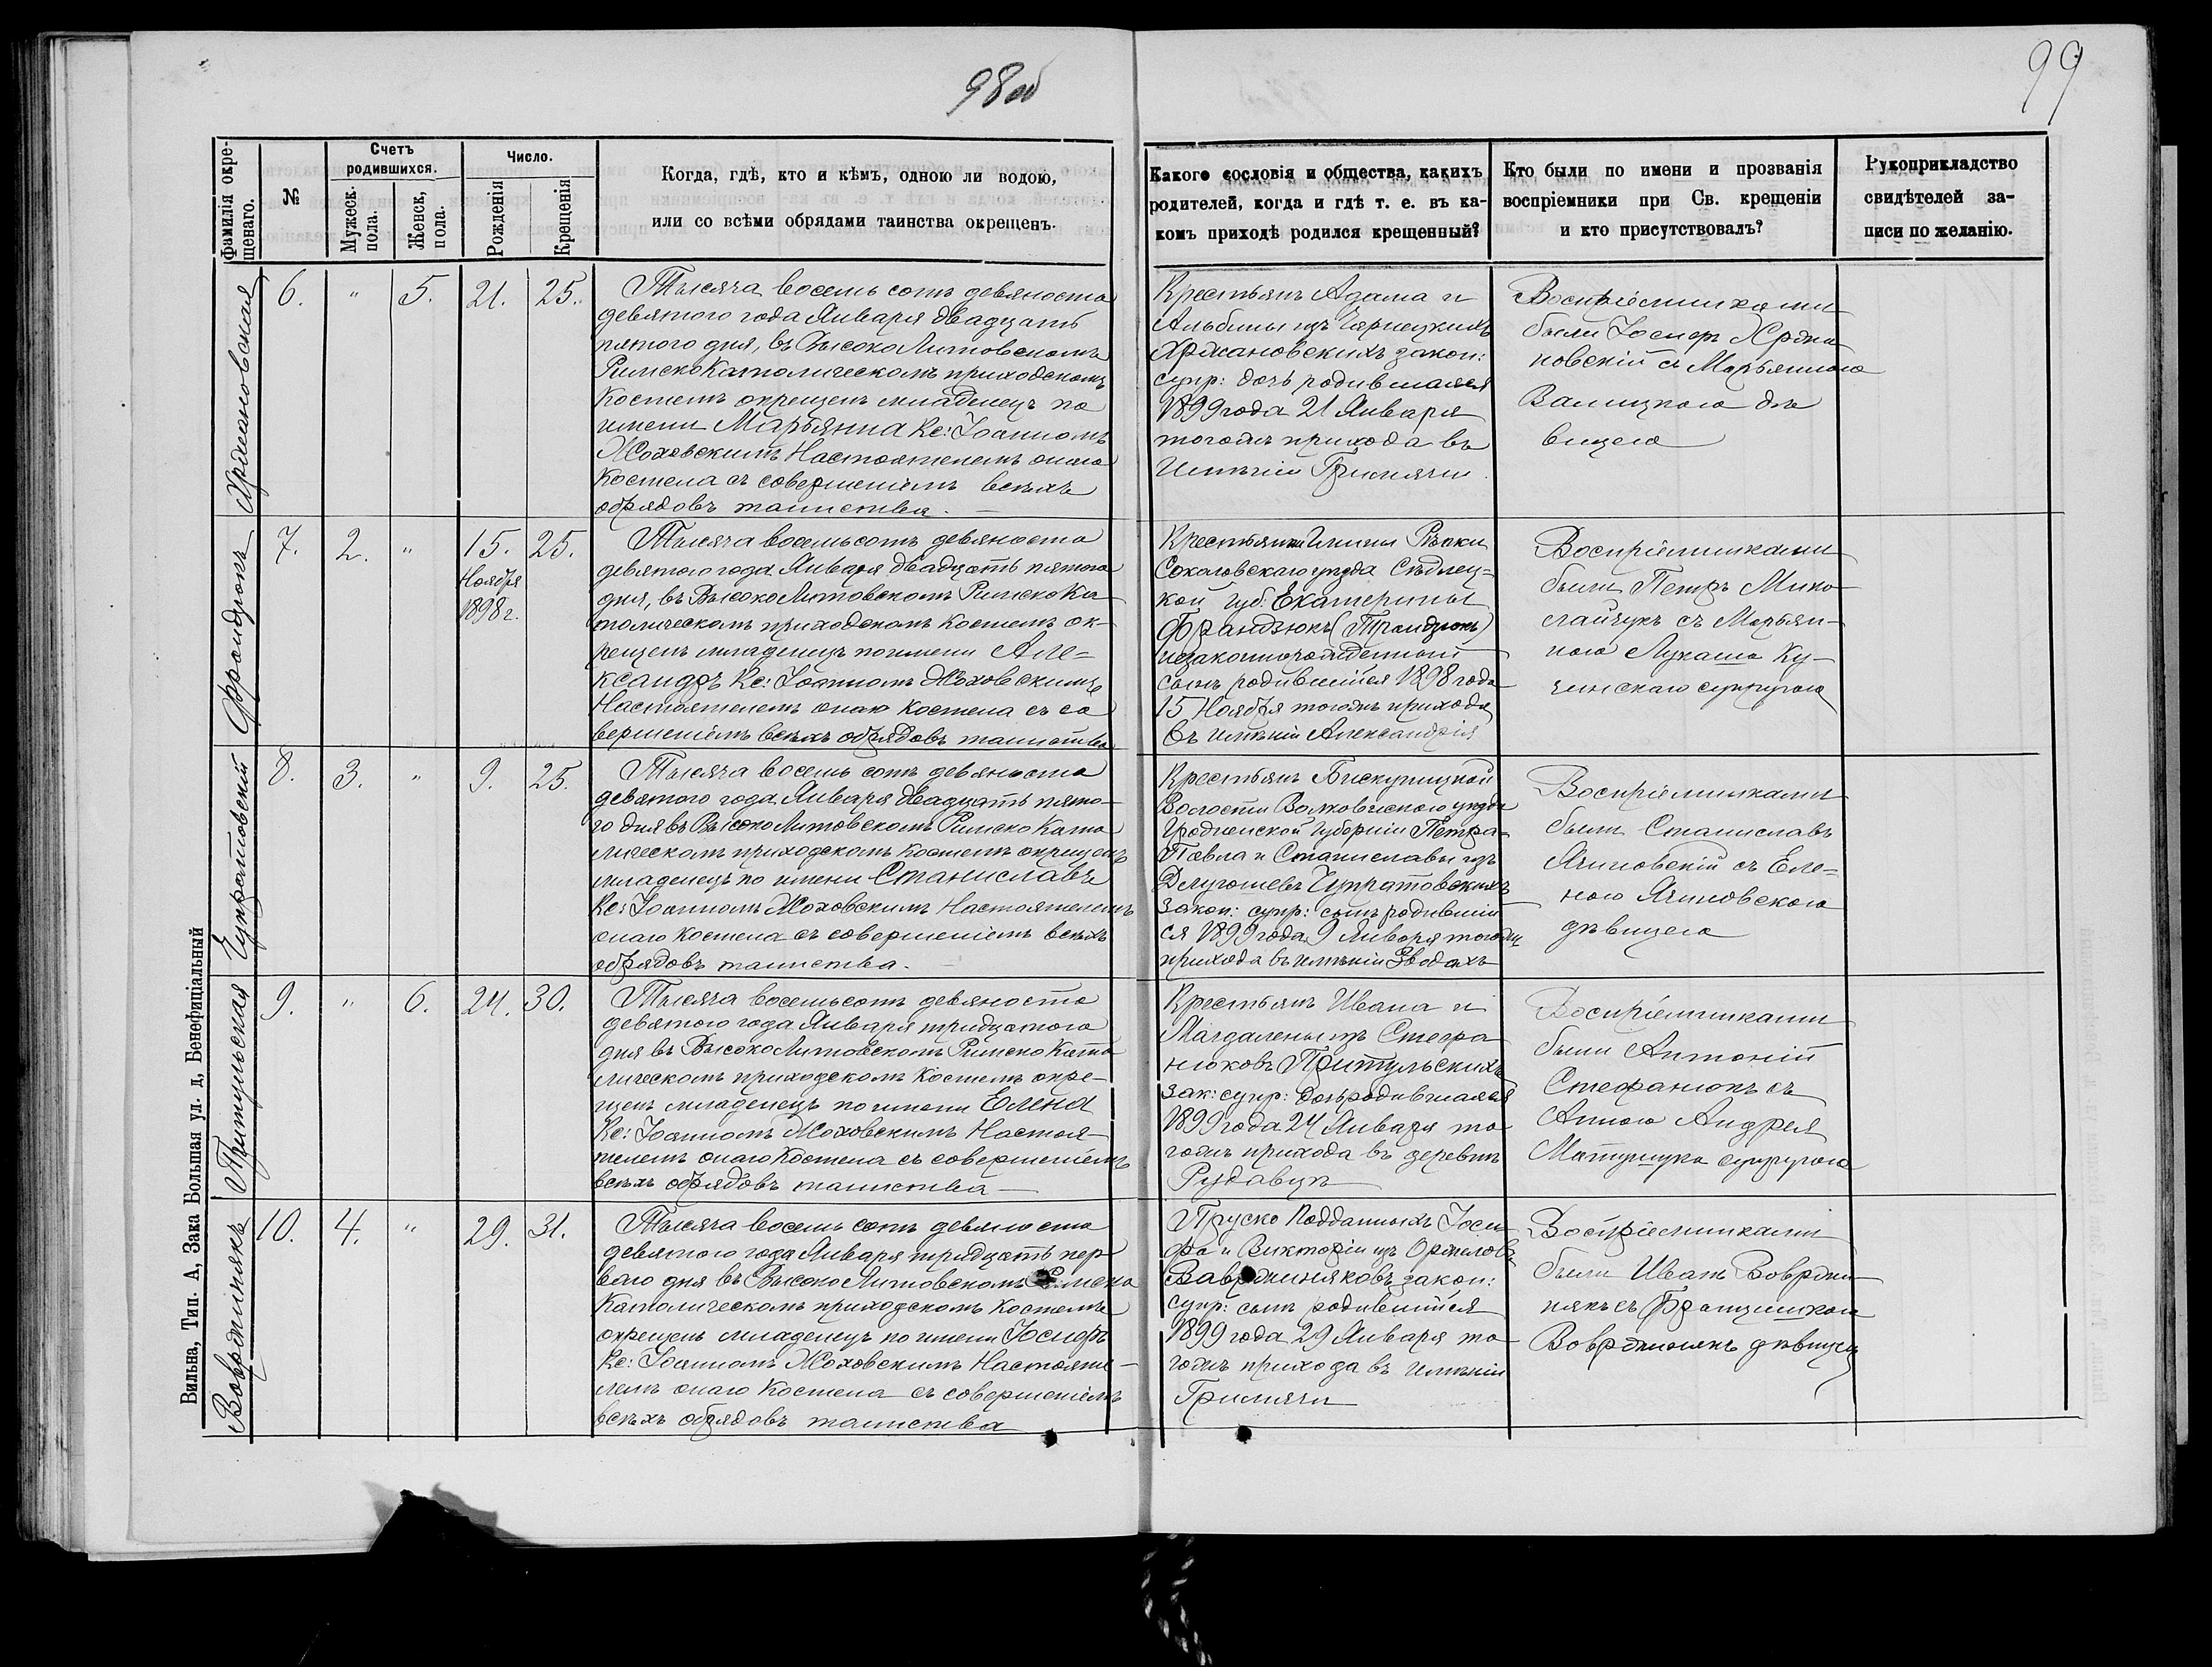 98 об
99
Фамилія окре-
щенаго.
№
Счетъ
родившихся.
Мужеск.
пола.
Женск,
пола.
Число.
Рожденія
Крещенія
Когда, гдѣ, кто и кѣмъ, одною ли водою,
или со всѣми обрядами таинства окрещенъ.
Какого сословія и общества, какихъ
родителей, когда и гдѣ т. е. въ ка-
комъ приходѣ родился крещенный?
Кто были по имени и прозванія
воспріемники при Св. крещеніи
и кто присутствовалъ?
Рукоприкладство
свидѣтелей за-
писи по желанію.
Хржановская
6.
"
5.
21.
25.
Тысяча восемь сотъ девяноста
девятого года Января двадцать
пятого дня, въ ВысокоЛитовскомъ
РимскоКатолическомъ приходскомъ
Костелѣ окрещенъ младенецъ по
имени Марьянна Кс: Іоанномъ
Жоховскимъ Настоятелемъ онаго
Костела съ совершеніемъ всѣхъ
обрядовъ таинства.
Крестьянъ Адама и
Альбины изъ Чарнецкихъ
Хржановскихъ закон:
супр: дочь родившаяся
1899 года 21 Января
тогожъ прихода въ
Имѣніи Гримячи
Воспріемниками
были Іосифъ Хржа
новскій съ Марьянною
Валицкою дѣ
вицею
Франдзюкъ
7.
2.
"
15.
Ноября
1898 г.
25.
Тысяча восемьсотъ девяноста
девятого года Января двадцать пятого
дня, въ ВысокоЛитовскомъ РимскоКа
толическомъ приходскомъ Костелѣ ок-
рещенъ младенецъ по имени Але-
ксандръ Кс: Іоанномъ Жоховскимъ
Настоятелемъ онаго Костела съ со
вершеніемъ всѣхъ обрядовъ таинства
Крестьянки Гмины Рѣпки
Соколовскаго уѣзда Сѣдлец-
кой губ: Екатерины
Франдзюкъ (Трандзюкъ)
незаконнорожденный
сынъ родившійся 1898 года
15 Ноября тогожъ прихода
въ имѣніи Александрія
Воспріемниками
были Петръ Мико
лайчукъ съ Марьян-
ною Лукаша Ку-
чинскаго супругою
Чупратовскій
8.
3.
"
9.
25.
Тысяча восемь сотъ девяноста
девятого года Января двадцать пято-
го дня въ ВысокоЛитовскомъ РимскоКато
лическомъ приходскомъ Костелѣ окрещенъ
младенецъ по имени Станиславъ
Кс: Іоанномъ Жоховскимъ Настоятелемъ
онаго Костела съ совершеніемъ всѣхъ
обрядовъ таинства.
Крестьянъ Бискупицкой
Волости Волковыскаго уѣзда
Гродненской губерніи Петра-
Павла и Станиславы изъ
Длугошевъ Чупратовскихъ
закон: супр: сынъ родившій
ся 1899 года 9 Января тогожъ
прихода въ имѣніи Зводахъ
Воспріемниками
были Станиславъ
Ячиновскій съ Еле-
ною Ячиновскою
дѣвицею
Притульская
9.
"
6.
24.
30.
Тысяча восемьсотъ девяноста
девятого года Января тридцатого
дня въ ВысокоЛитовскомъ РимскоКато
лическомъ приходскомъ Костелѣ окре-
щенъ младенецъ по имени Елена
Кс: Іоанномъ Жоховскимъ Настоя-
телемъ онаго Костела съ совершеніемъ
всѣхъ обрядовъ таинства
Крестьянъ Ивана и
Магдалены изъ Стефа
нюковъ Притульскихъ
зак: супр: дочь родившаяся
1899 года 24 Января то
гожъ прихода въ деревнѣ
Рудавцѣ
Воспріемниками
были Антоній
Стефанюкъ съ
Анною Андрея
супругою
Вавржинякъ
10.
4.
"
29.
31.
Тысяча восемь сотъ девяноста
девятого года Января тридцать пер
ваго дня въ ВысокоЛитовскомъ Римско
Католическомъ приходскомъ Костелѣ
окрещенъ младенецъ по имени Іосифъ
Кс: Іоанномъ Жоховскимъ Настояте-
лемъ онаго Костела съ совершеніемъ
всѣхъ обрядовъ таинства
Пруско Подданныхъ Іоси
фа и Викторіи изъ Оржеловъ
Вавржиняковъ закон:
супр: сынъ родившійся
1899 года 29 Января то
гожъ прихода въ имѣніи
Гримячи
Воспріемниками
были Иванъ Вовржи
някъ съ Францишкою
Вовржинякъ дѣвицею
Вильна, Тип. А, Зака Большая ул. д, Бенефиціальный